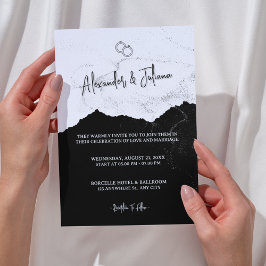 Alexander & Juliana
THEY WARMLY INVITE YOU TO JOIN THEM IN
THEIR CELEBRATION OF LOVE AND MARRIAGE
WEDNESDAY, AUGUST 23, 20XX
START AT 05.00 PM - 07.00 PM
BORCELLE HOTEL & BALLROOM
123 ANYWHERE ST. ANY CITY
Reception To Follow